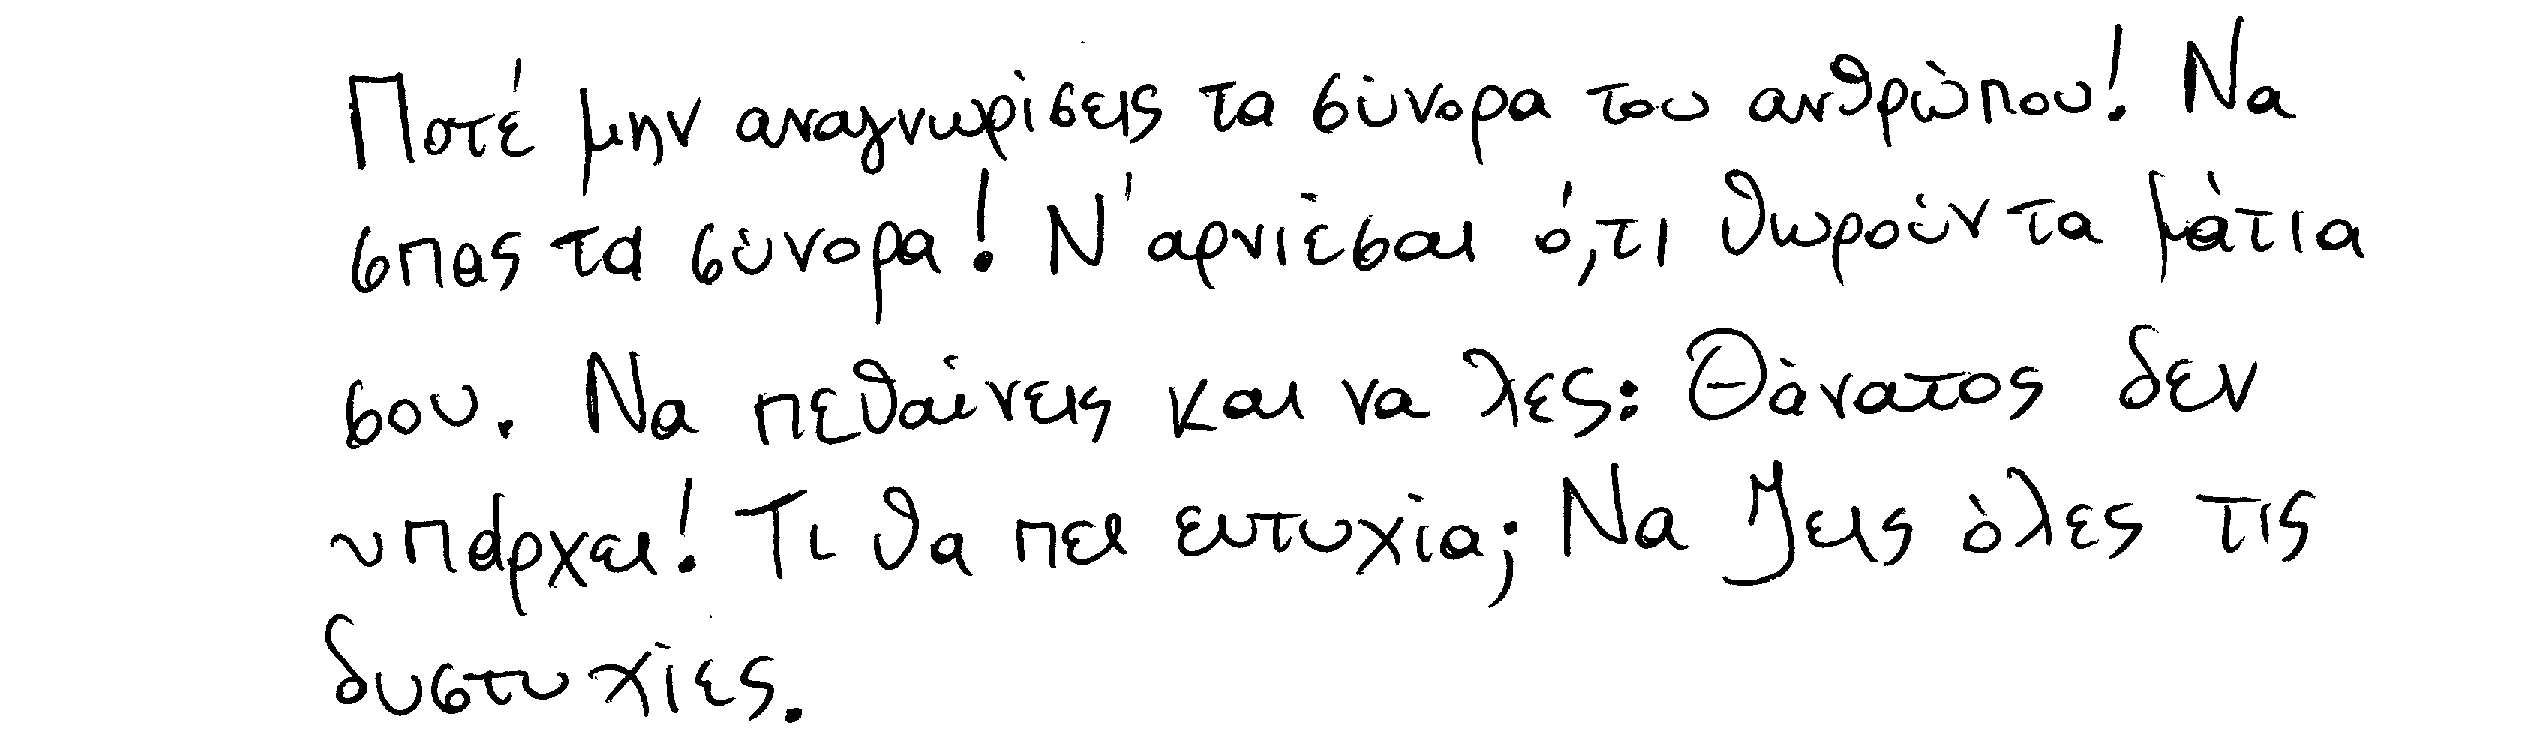 Ποτέ μην αναγνωρίσεις τα σύνορα του ανθρώπου! Να
σπας τα σύνορα! Ν'αρνιέσαι ό,τι θωρούν τα μάτια
σου. Να πεθαίνεις και να λες: Θάνατος δεν
υπάρχει! Τι θα πει ευτυχία; Να ζεις όλες τις
δυστυχίες.